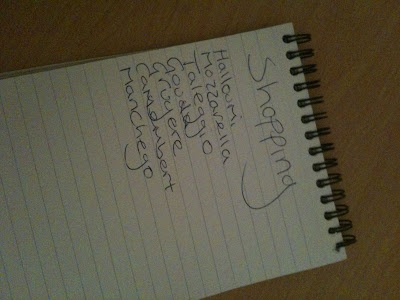 Shopping
Halloumi
Mozzarella
Taleggio
Gouda
Gruyere
Camembert
Manchego